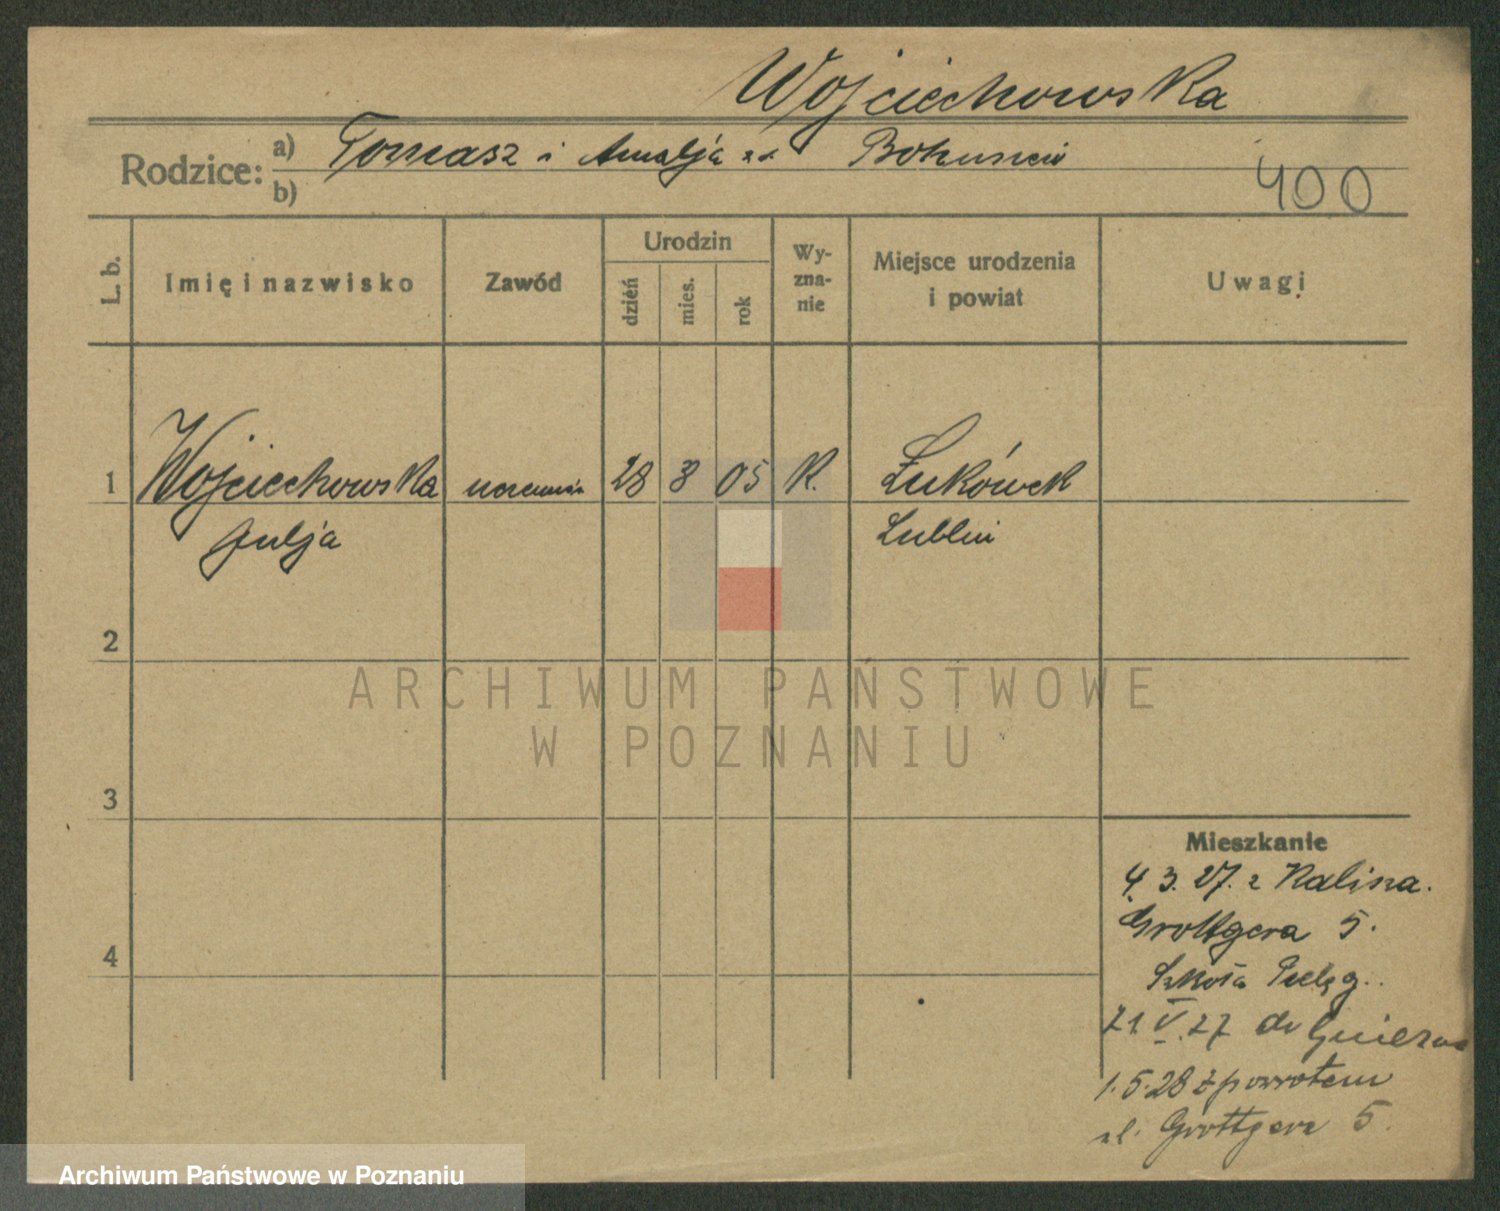 Wojciechowska
Rodzice: a) Tomasz i Amalja zd.
b)
400
L. b.
Imię i nazwisko
Zawód
Urodzin
dzień
mies.
rok
Wy-
zna-
nie
Miejsce urodzenia
i powiat
Uwagi
1 Wojciechowska uczennica 28 3 05 K. Łukówek
Julja Lublin
2
3
4
ARCHIWUM PAŃSTWOWE
W POZNANIU
Mieszkanie
4.3.27. z Kalisza.
Grottgera 5.
Szkoła Pielęg.
21.V.27 do Gniezna
1.5.28 z powrotem
ul. Grottgera 5.
Archiwum Państwowe w Poznaniu